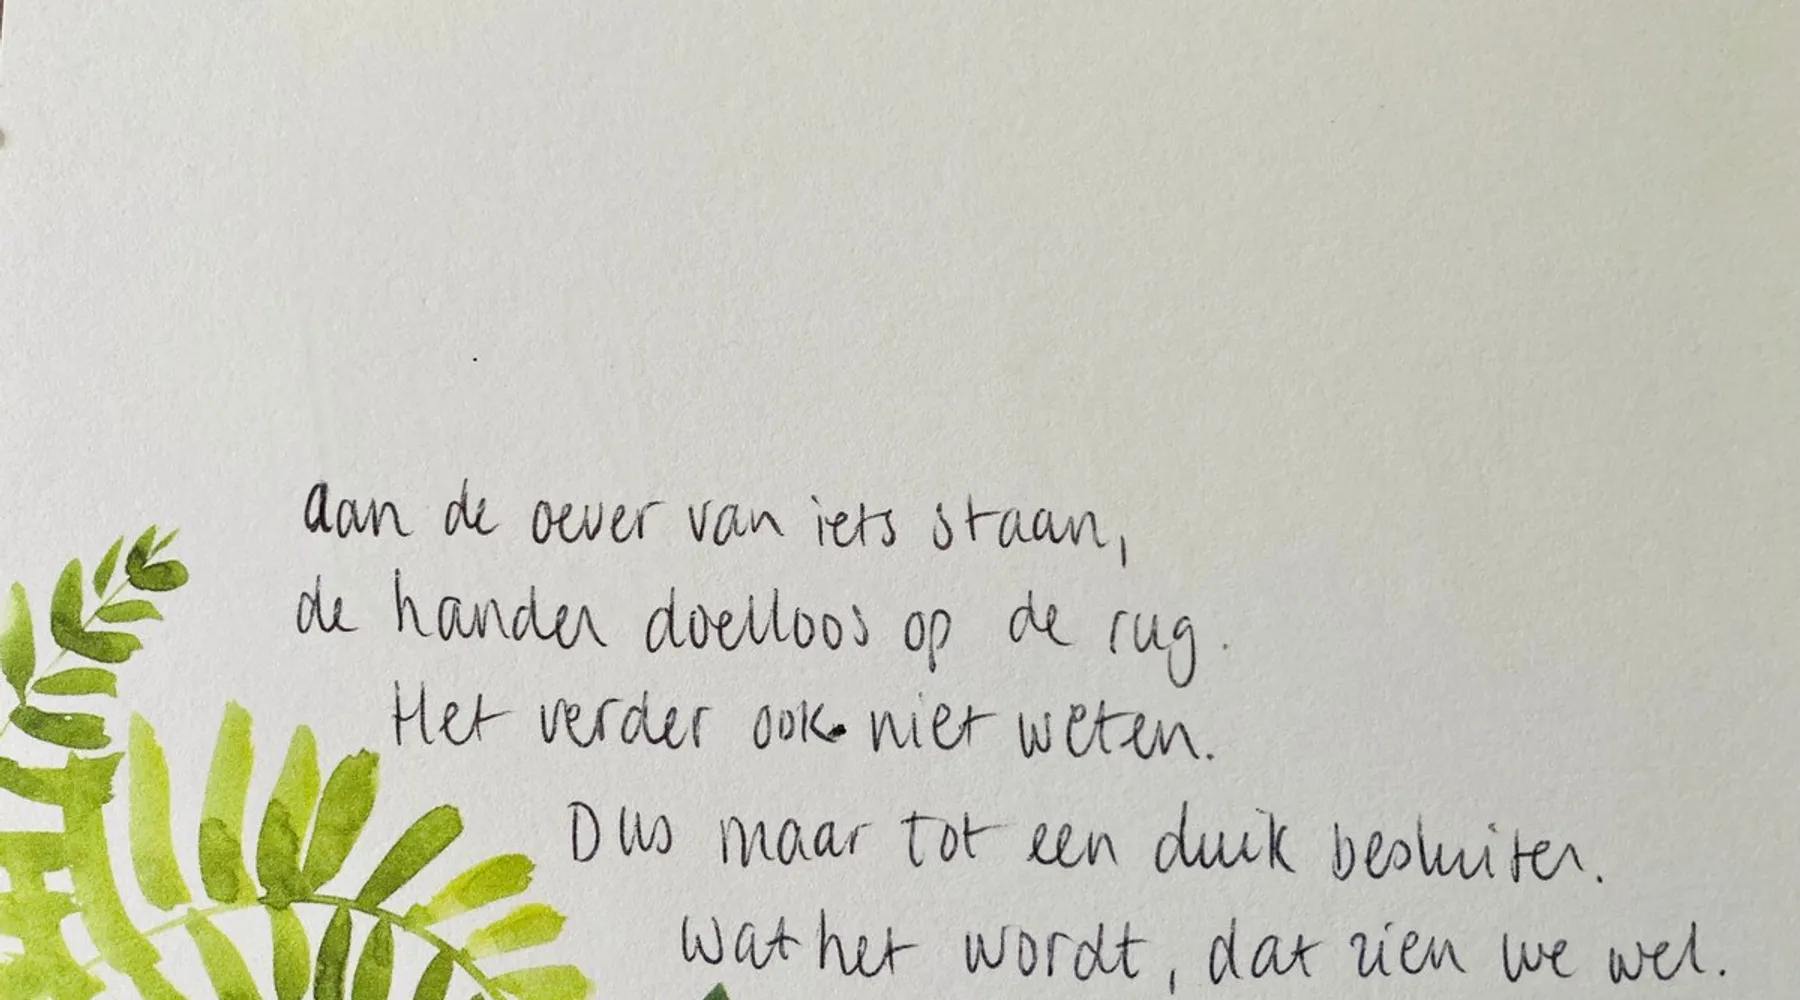 aan de oever van iets staan,
de handen doelloos op de rug.
Het verder ook niet weten.
Dus maar tot een duik besluiten.
Wat het wordt, dat zien we wel.